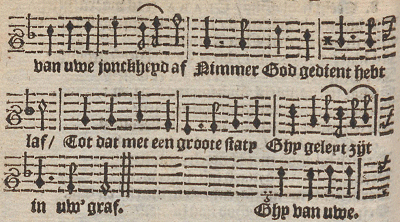 van uwe jonckheyd af Nimmer God gedient hebt
laf/ Tot dat met een groote staty Ghy geleyt zijt
in uw' graf. Ghy van uwe.